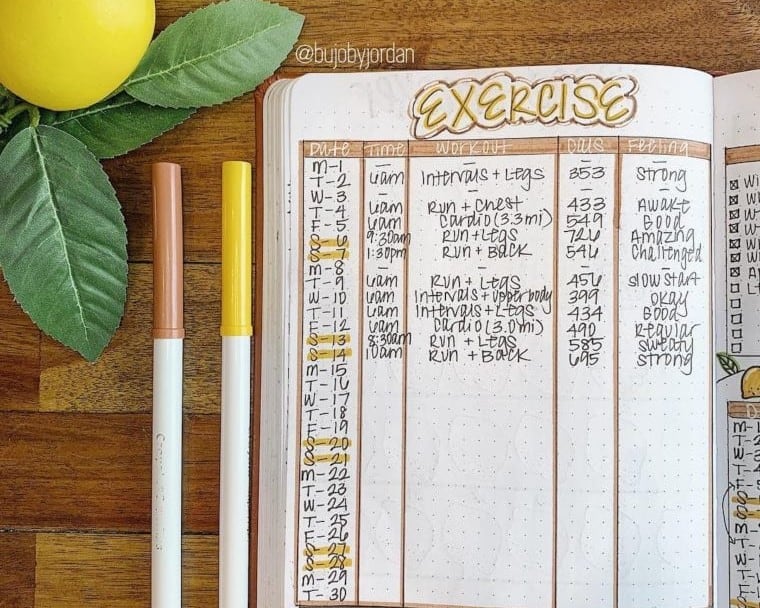 @bujobyjordan
EXERCISE
Date Time Workout Cals Feeling
M-1 - - - -
T-2 6am Intervals + Legs 353 Strong
W-3 - - - -
T-4 6am Run + Chest 433 Awake
F-5 6am Cardio (3.3mi) 549 Good
S-6 9:30am Run + Legs 726 Amazing
S-7 1:30pm Run + Back 546 Challenged
M-8 - - - -
T-9 6am Run + Legs 456 slow start
W-10 6am Intervals + upper body 399 okay
T-11 6am Intervals + Legs 434 Good
F-12 6am Cardio (3.0mi) 490 Regular
S-13 8:30am Run + Legs 585 sweaty
S-14 10am Run + Back 695 strong
M-15
T-16
W-17
T-18
F-19
S-20
S-21
M-22
T-23
W-24
T-25
F-26
S-27
S-28
M-29
T-30